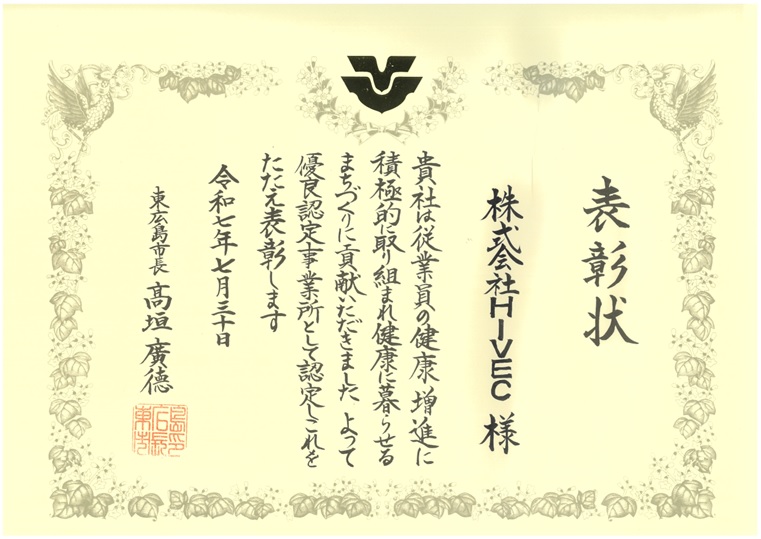 表彰状
株式会社HIVEC 様
貴社は従業員の健康増進に
積極的に取り組まれ健康に暮らせる
まちづくりに貢献いただきました よって
優良認定事業所として認定しこれを
たたえ表彰します
令和七年七月三十日
東広島市長 髙垣 廣德